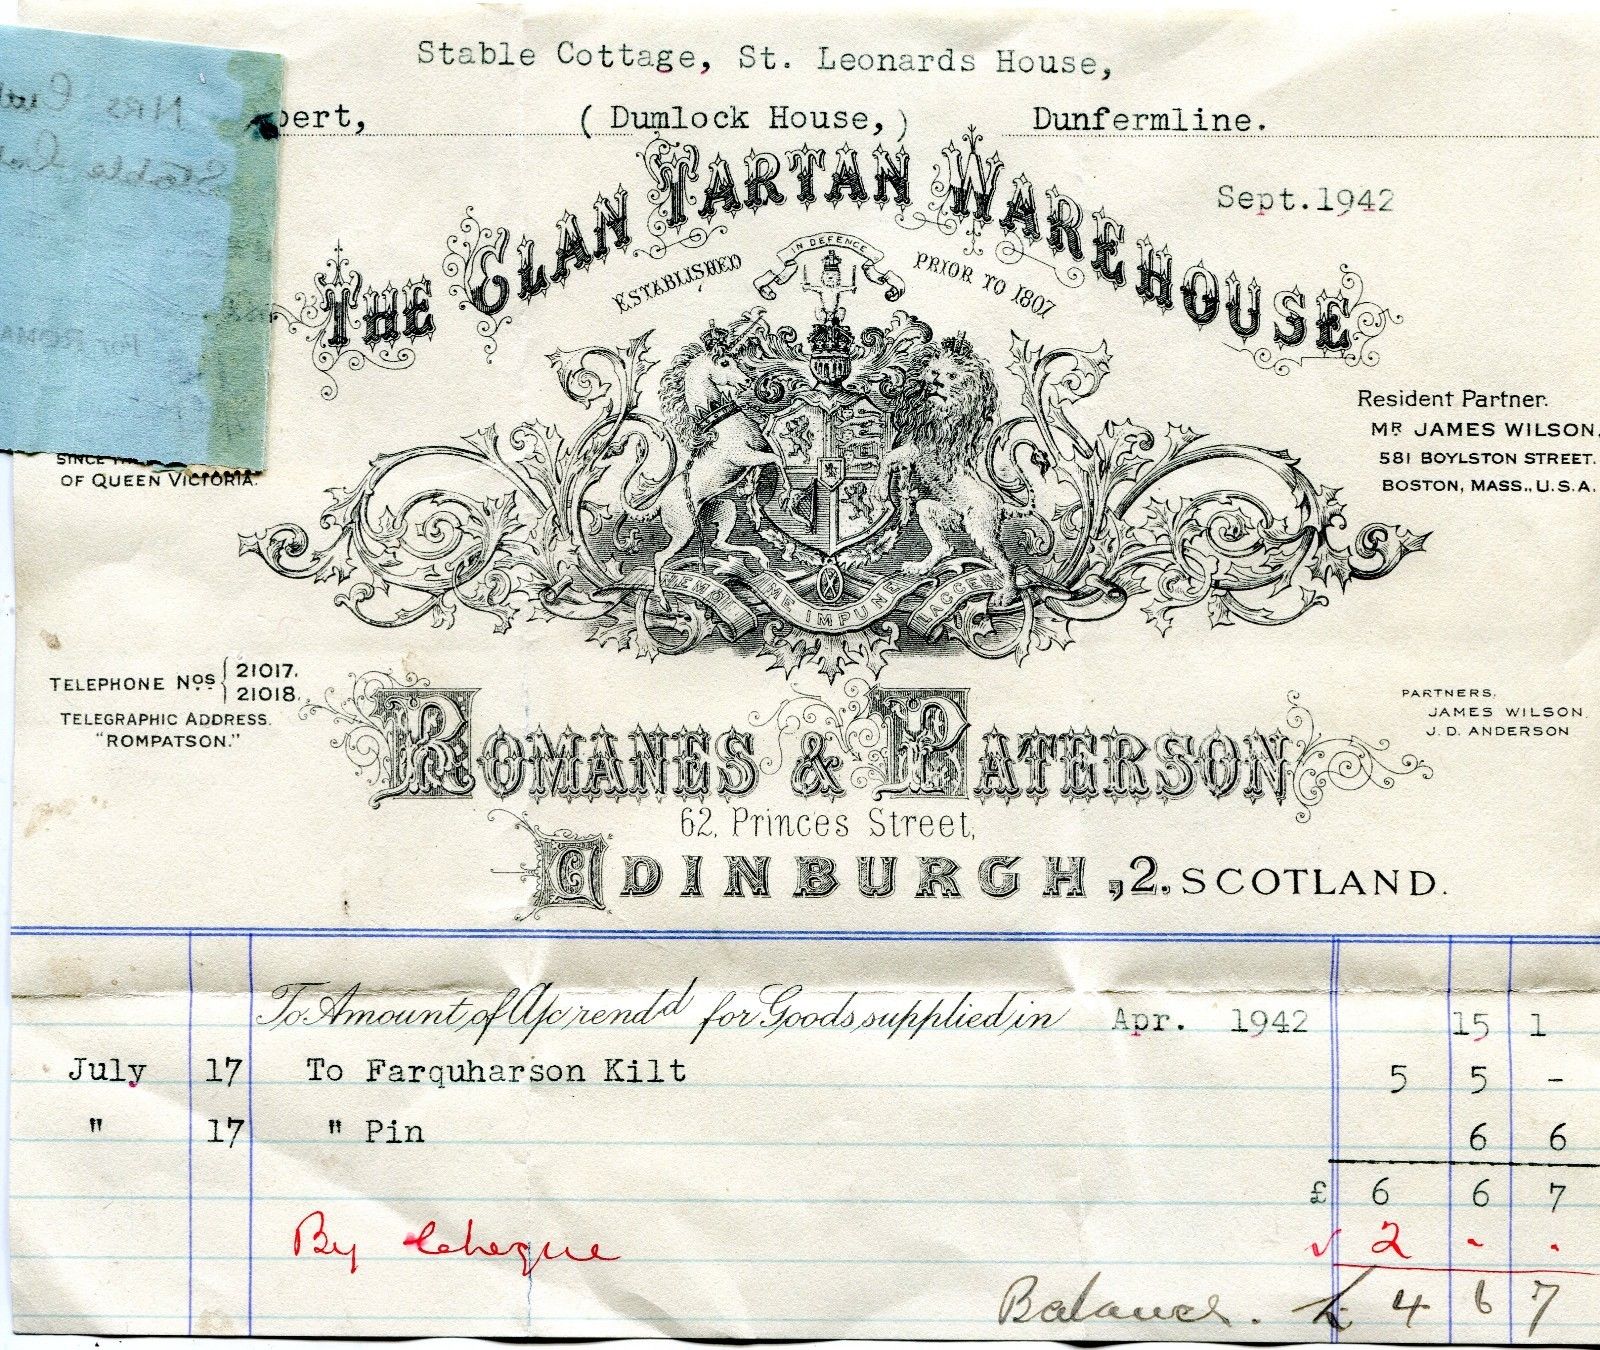 Stable Cottage, St. Leonards House,
bert, ( Dumlock House,) Dunfermline.
Sept.1942
THE CLAN TARTAN WAREHOUSE
ESTABLISHED PRIOR TO 1807
IN DEFENCE
Resident Partner.
MR JAMES WILSON,
581 BOYLSTON STREET.
BOSTON, MASS., U.S.A.
SINCE
OF QUEEN VICTORIA.
NEMO ME IMPUNE LACCES
TELEPHONE NOS { 21017. 21018.
TELEGRAPHIC ADDRESS.
"ROMPATSON."
PARTNERS.
JAMES WILSON.
J. D. ANDERSON
ROMANES & PATERSON
62, Princes Street,
EDINBURGH ,2. SCOTLAND.
To Amount of A/c rend^d for Goods supplied in Apr. 1942 15 1
July 17 To Farquharson Kilt 5 5 -
" 17 " Pin 6 6
£ 6 6 7
By Cheque ✓ 2 - .
Balance. £ 4 6 7
Mrs
Stable